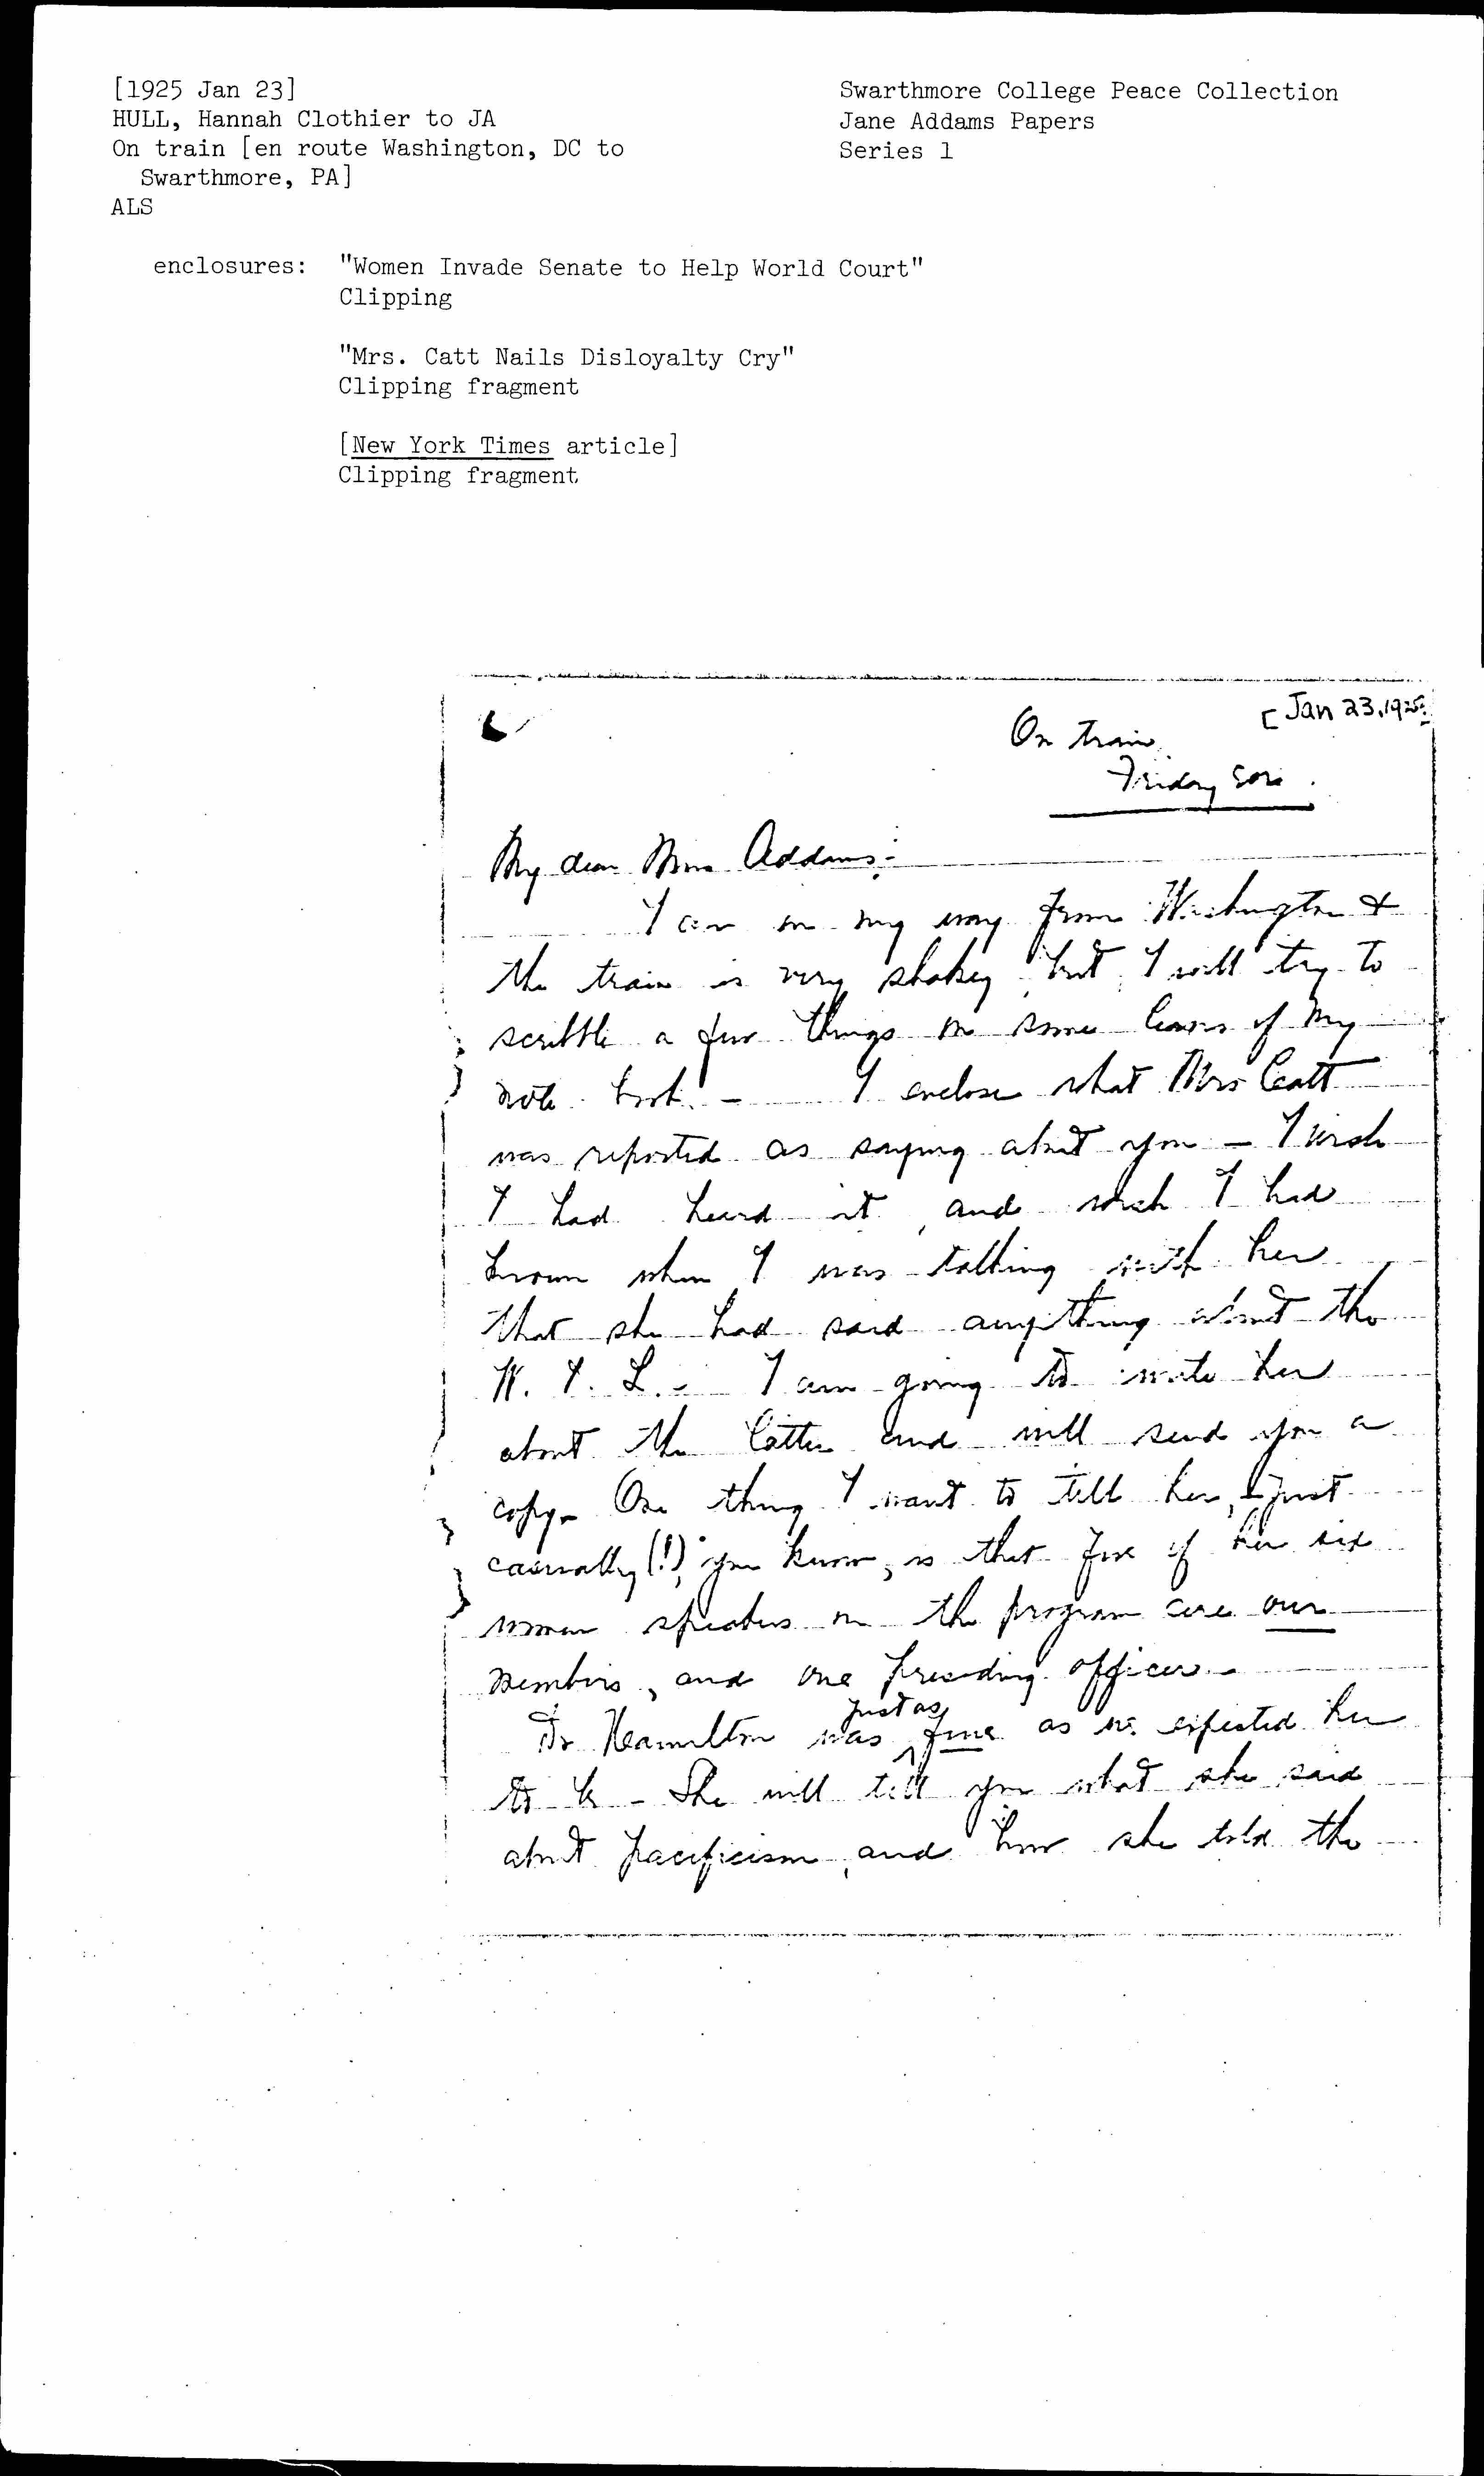 [1925 Jan 23]
HULL, Hannah Clothier to JA
On train [en route Washington, DC to
Swarthmore, PA]
ALS
Swarthmore College Peace Collection
Jane Addams Papers
Series 1
enclosures: "Women Invade Senate to Help World Court"
Clipping
"Mrs. Catt Nails Disloyalty Cry"
Clipping fragment
[New York Times article]
Clipping fragment
[Jan 23, 1925
On train
Friday
My dear Miss Addams:-
I am on my way from Washington &
the train is very shakey, but I will try to
scribble a few things on some leaves of my
note book. - I enclose what Mrs Catt
was reported as saying about you - I wish
I had heard it, and wish I had
known when I was talking with her
that she had said anything about the
W. I. L. - I am going to write her
about the latter and will send you a
copy. One thing I want to tell her, - just
casually (!), you know, is that five of her six
women speakers on the program are our
members, and one presiding officer. -
Dr Hamilton was just as fine as we expected her
to be - She will tell you what she said
about pacificism, and how she told the